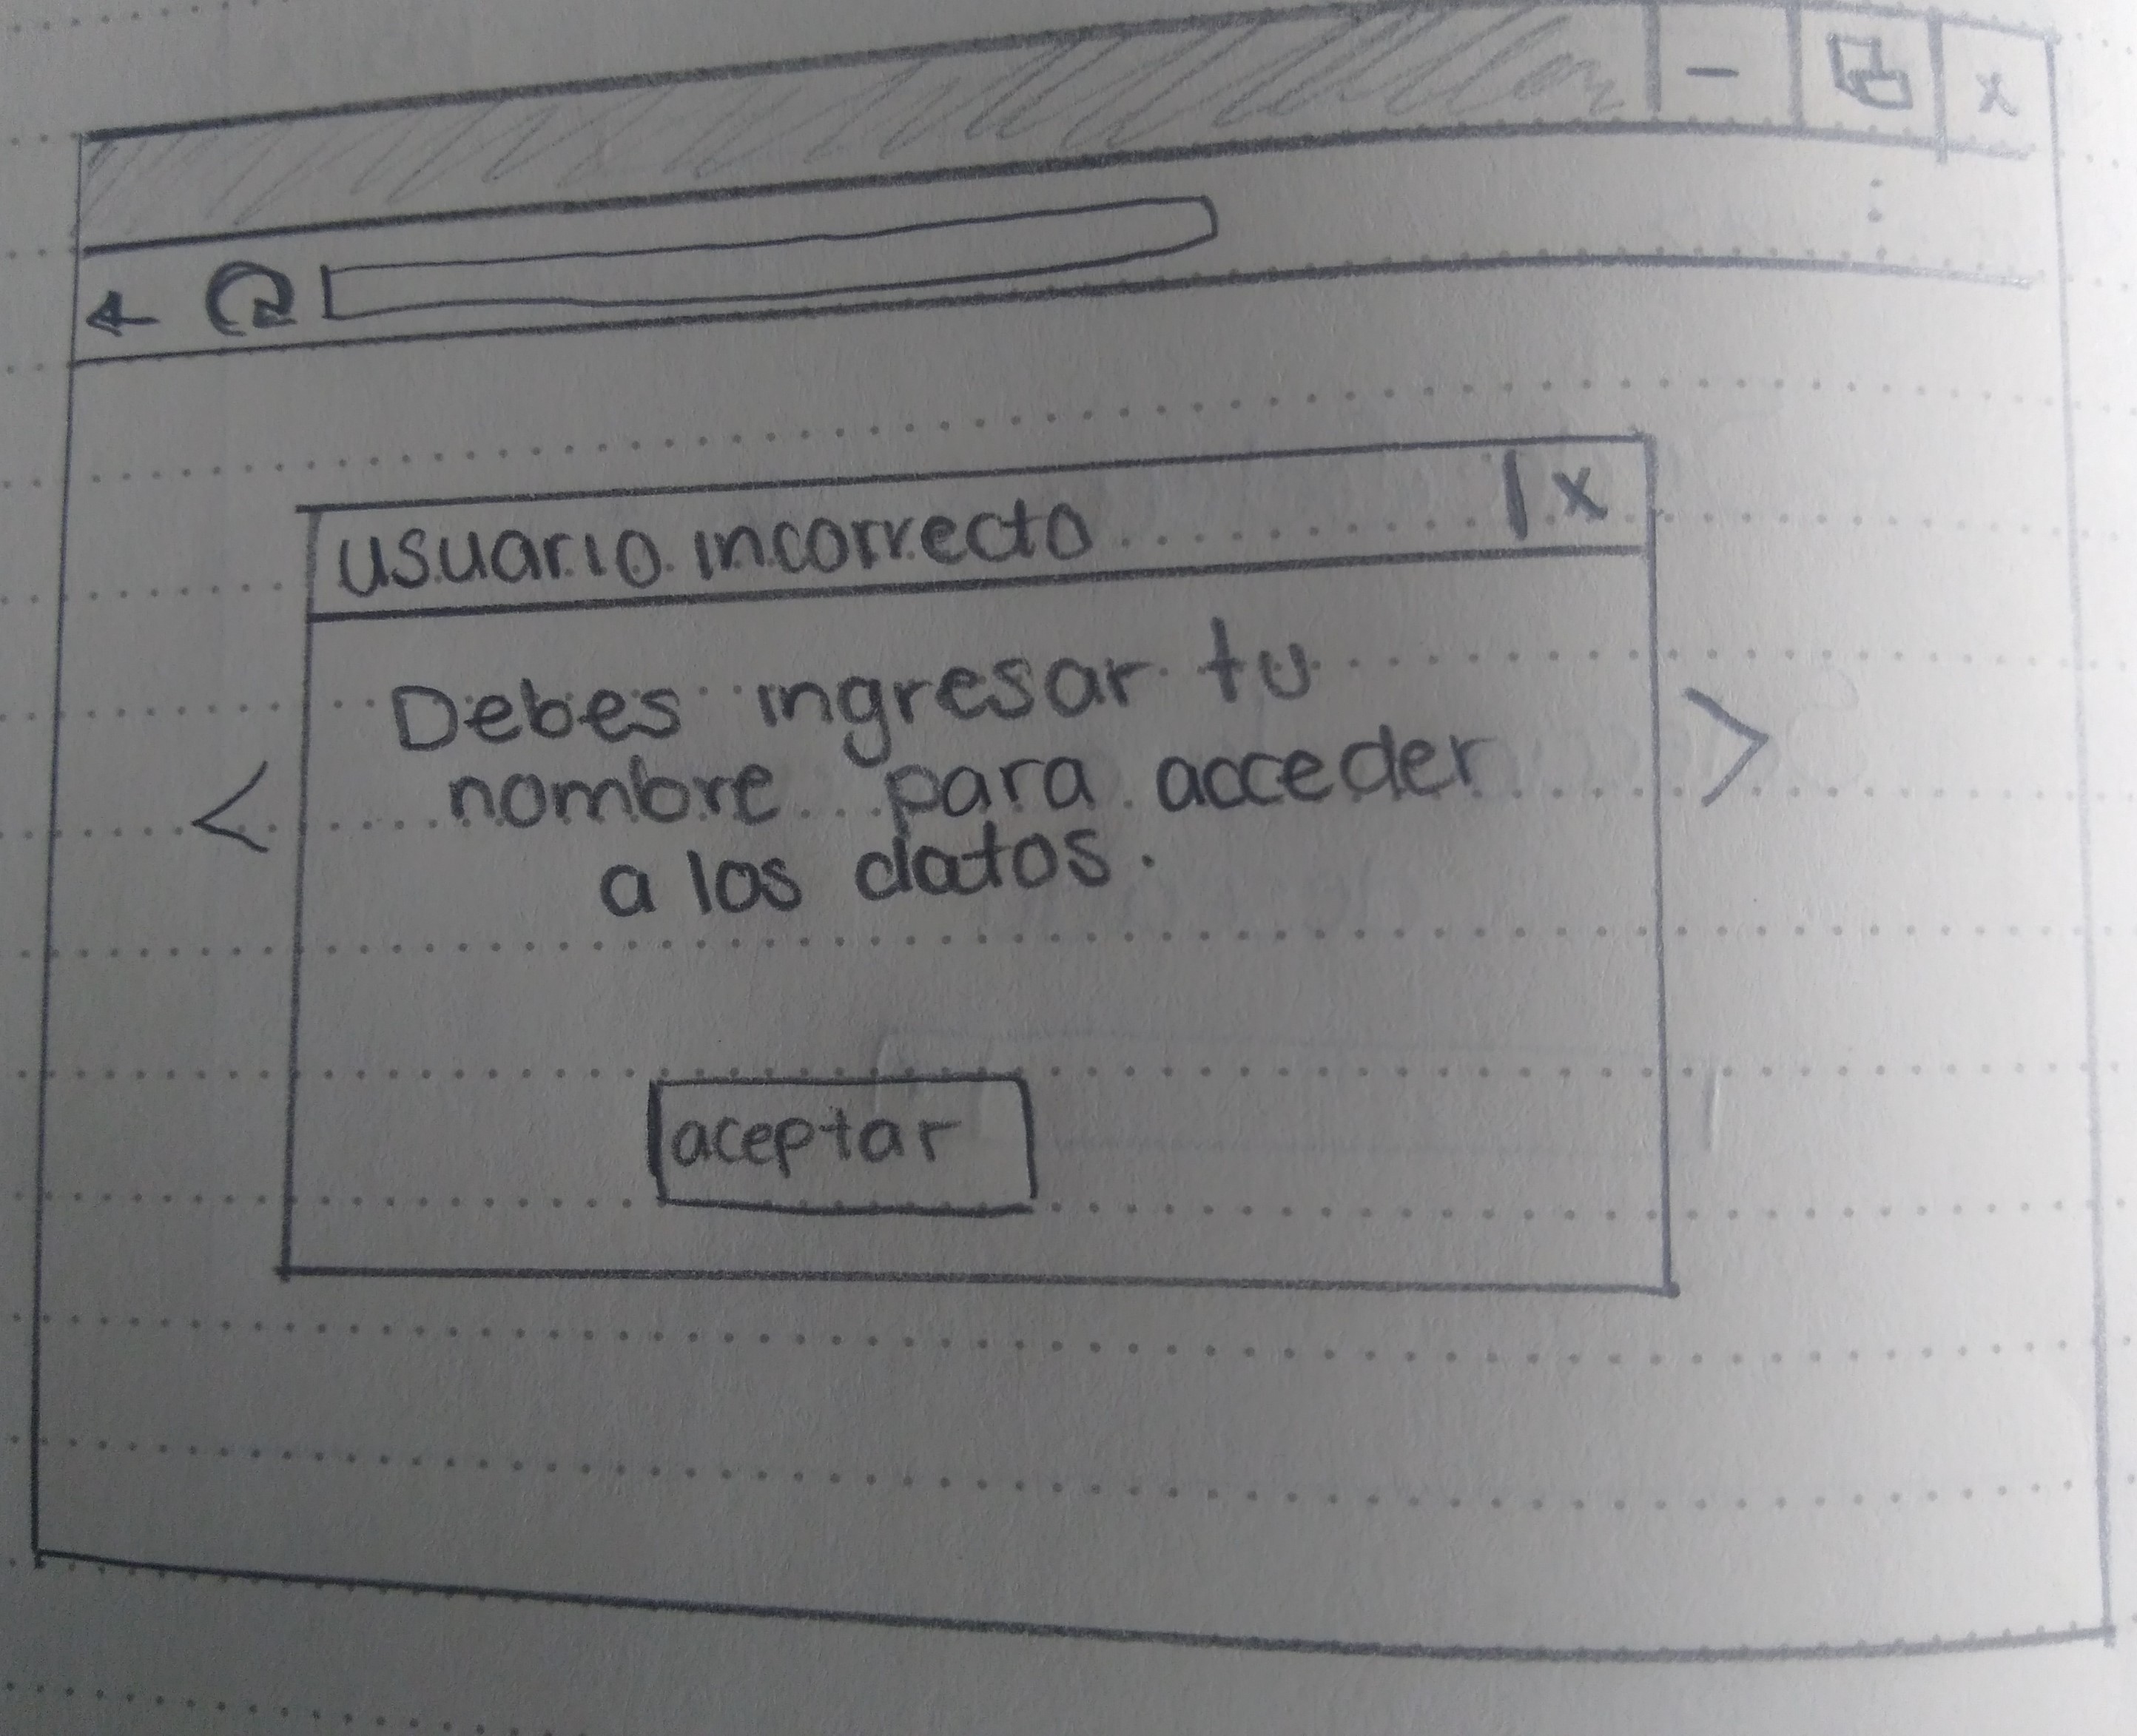 usuario incorrecto
x
Debes ingresar tu
nombre para acceder
a los datos.
aceptar